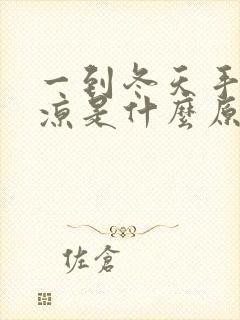 一到冬天手
凉是什麼原
佐倉